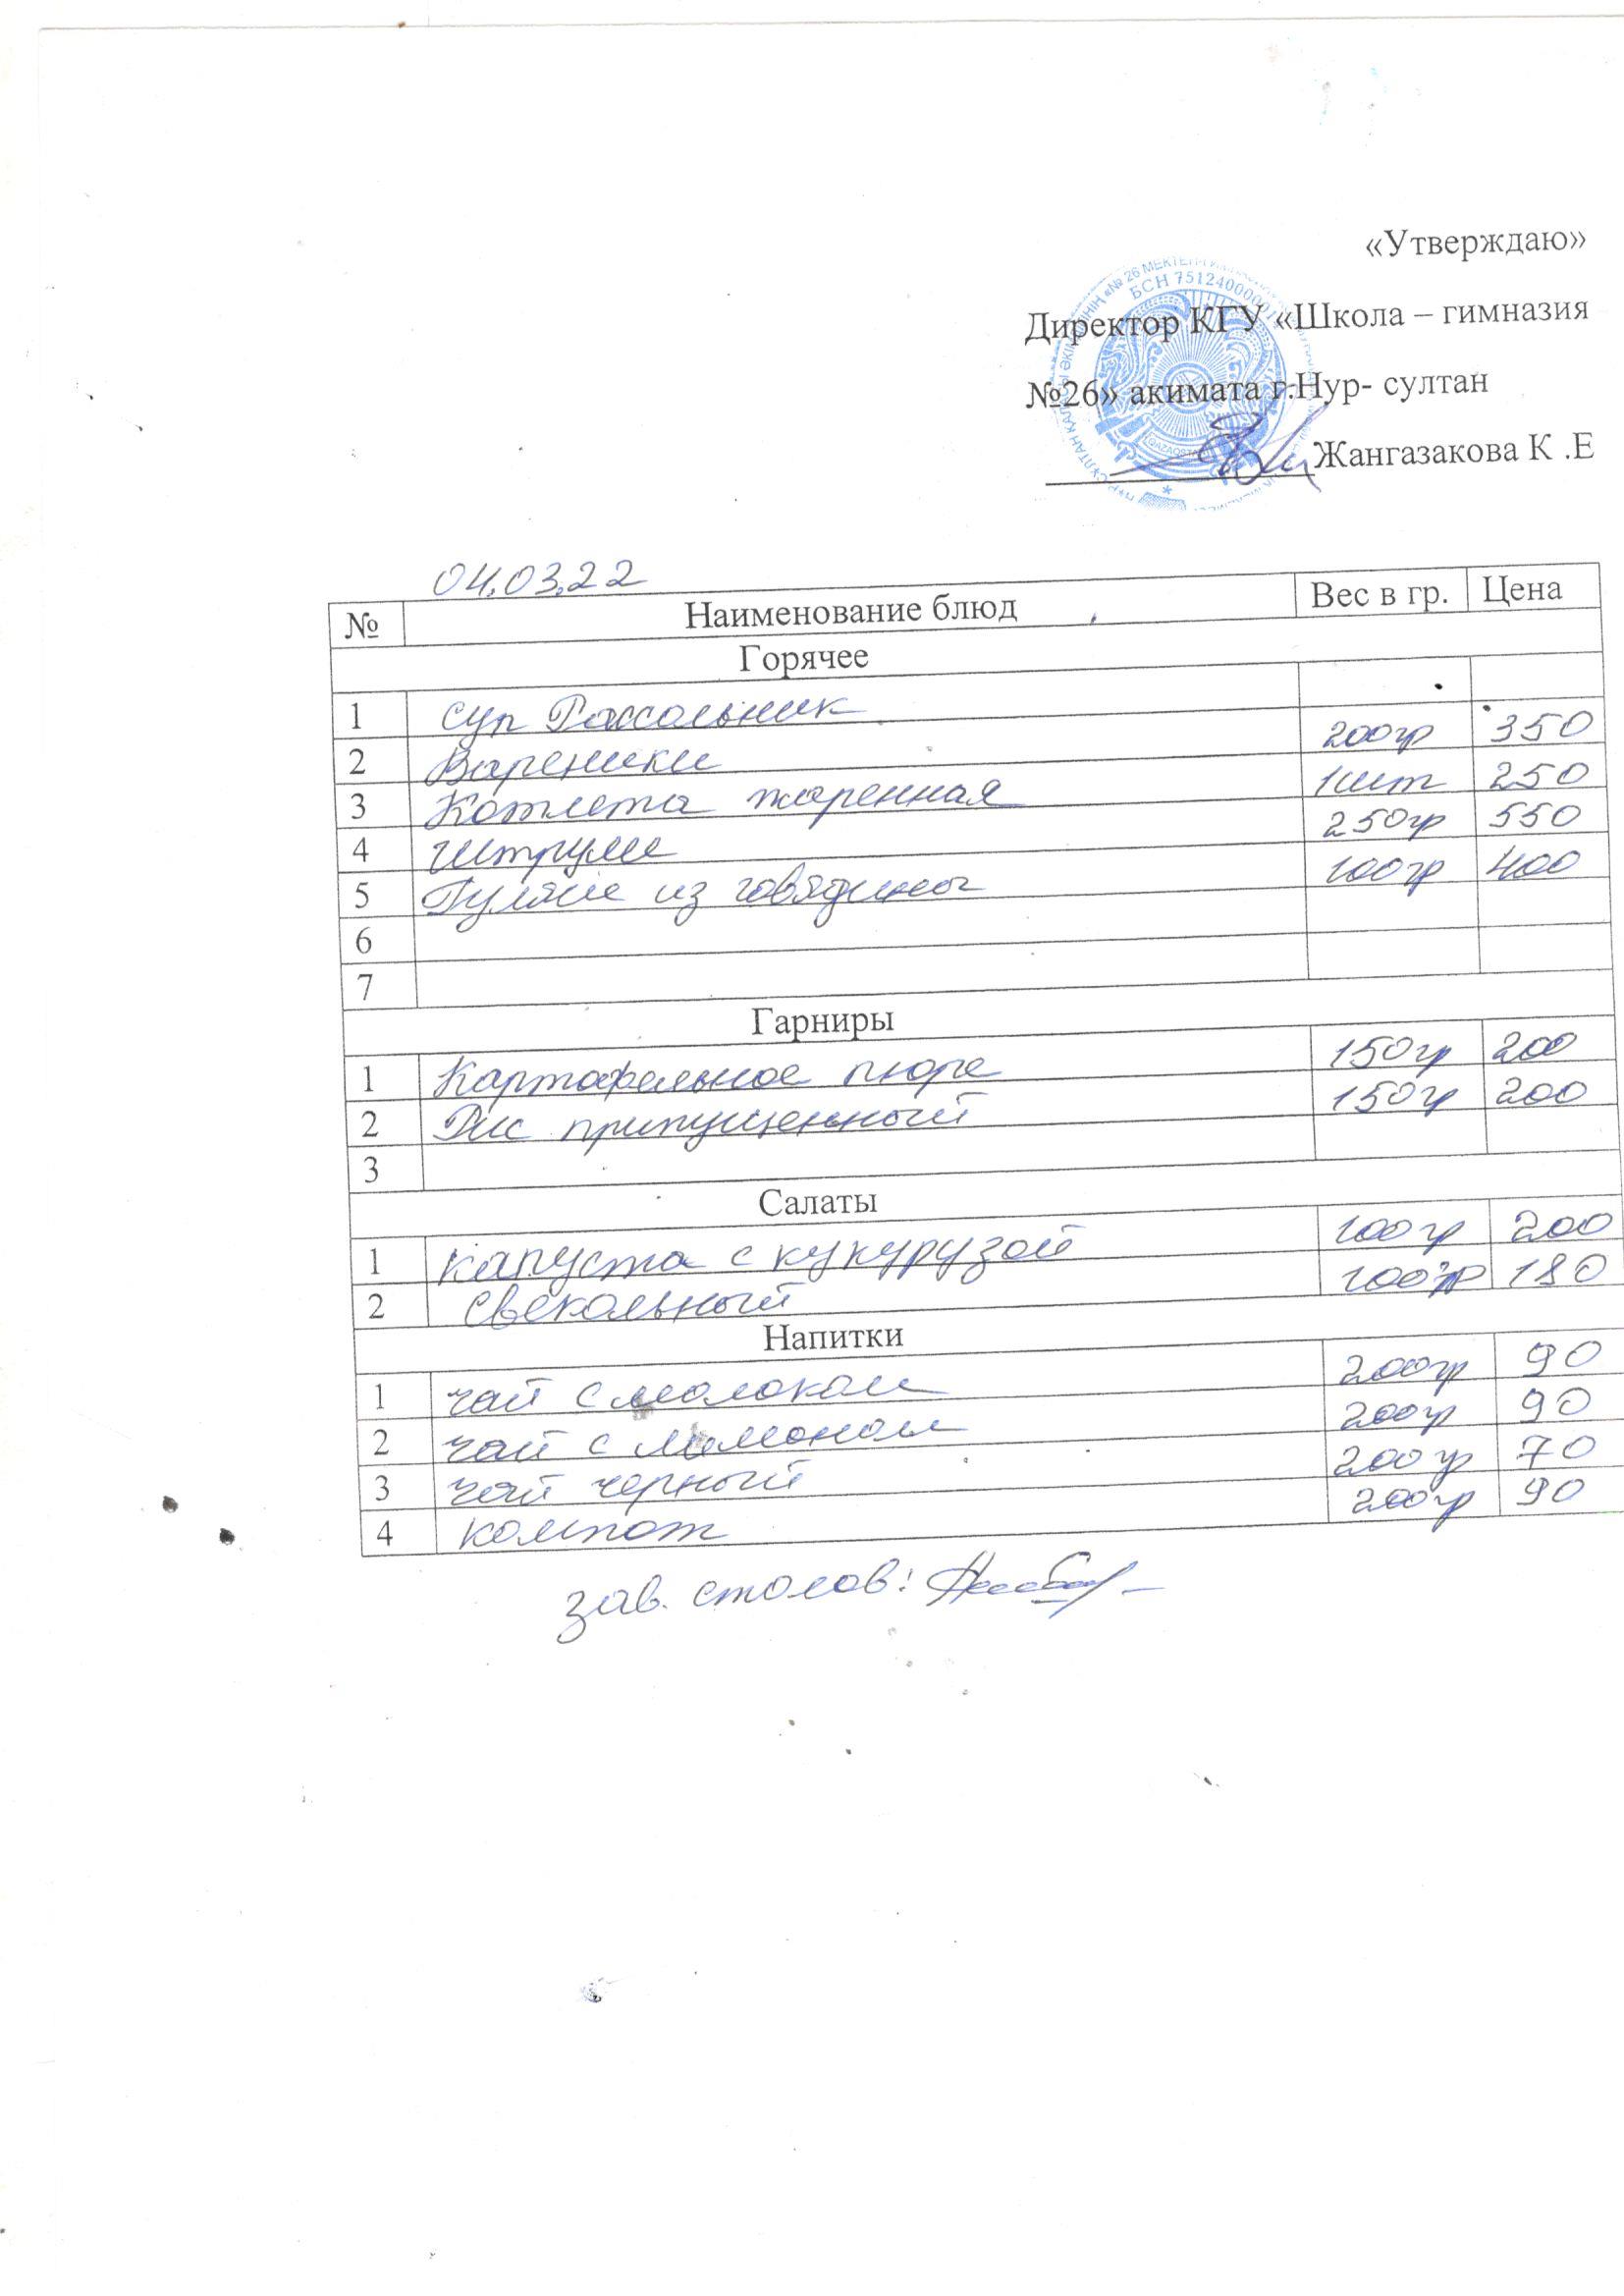 «Утверждаю»
Директор КГУ «Школа – гимназия
№26» акимата г.Нур- султан
Жангазакова К .Е
БСН 7512400001
04.03.22
№ Наименование блюд Вес в гр. Цена
Горячее
1 Суп Рассольник
2 Вареники 200гр 350
3 Котлета жаренная 1шт 250
4 Штрули 250гр 550
5 Гуляш из говядины 100гр 400
6
7
Гарниры
1 Картофельное пюре 150гр 200
2 Рис припущенный 150гр 200
3
Салаты
1 капуста с кукурузой 100гр 200
2 свекольный 100гр 180
Напитки
1 чай с молоком 200гр 90
2 чай с лимоном 200гр 90
3 чай черный 200гр 70
4 компот 200гр 90
зав. столов: